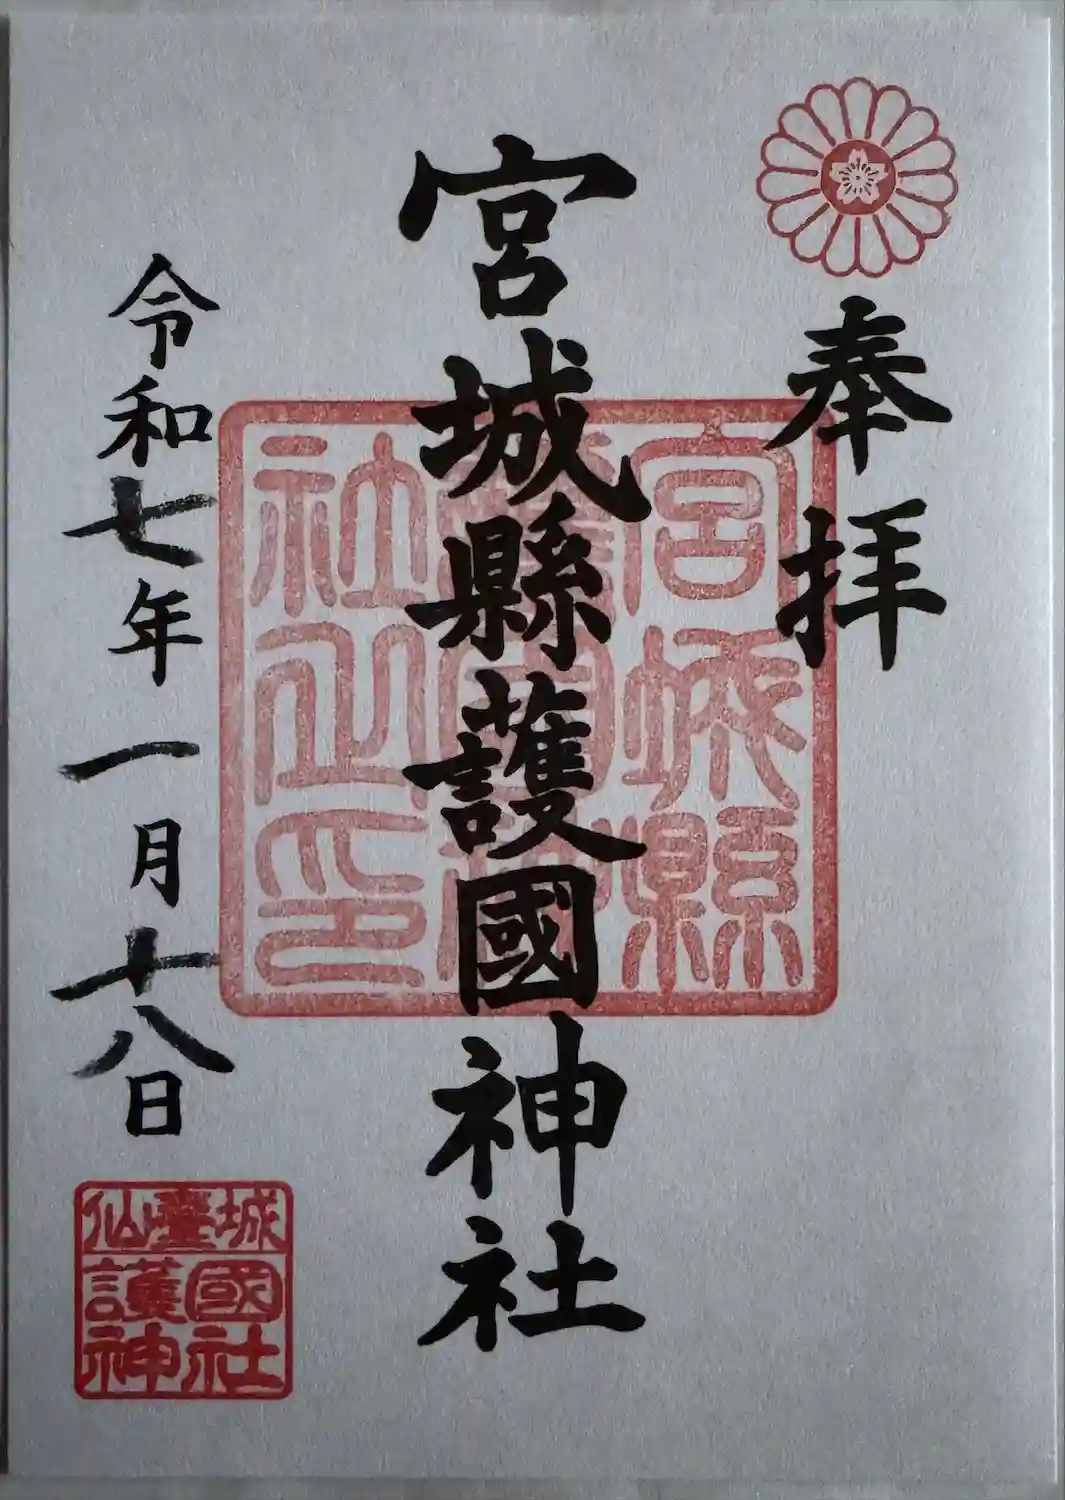 奉拝
宮城縣護國神社
宮城縣
護國神
社之印
令和七年一月十八日
仙臺城
護國
神社